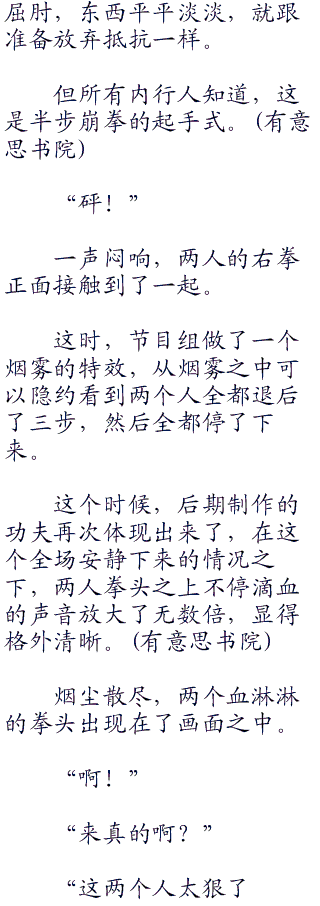 屈肘，东西平平淡淡，就跟
准备放弃抵抗一样。
但所有内行人知道，这
是半步崩拳的起手式。(有意
思书院)
“砰！”
一声闷响，两人的右拳
正面接触到了一起。
这时，节目组做了一个
烟雾的特效，从烟雾之中可
以隐约看到两个人全都退后
了三步，然后全都停了下
来。
这个时候，后期制作的
功夫再次体现出来了，在这
个全场安静下来的情况之
下，两人拳头之上不停滴血
的声音放大了无数倍，显得
格外清晰。(有意思书院)
烟尘散尽，两个血淋淋
的拳头出现在了画面之中。
“啊！”
“来真的啊？”
“这两个人太狠了